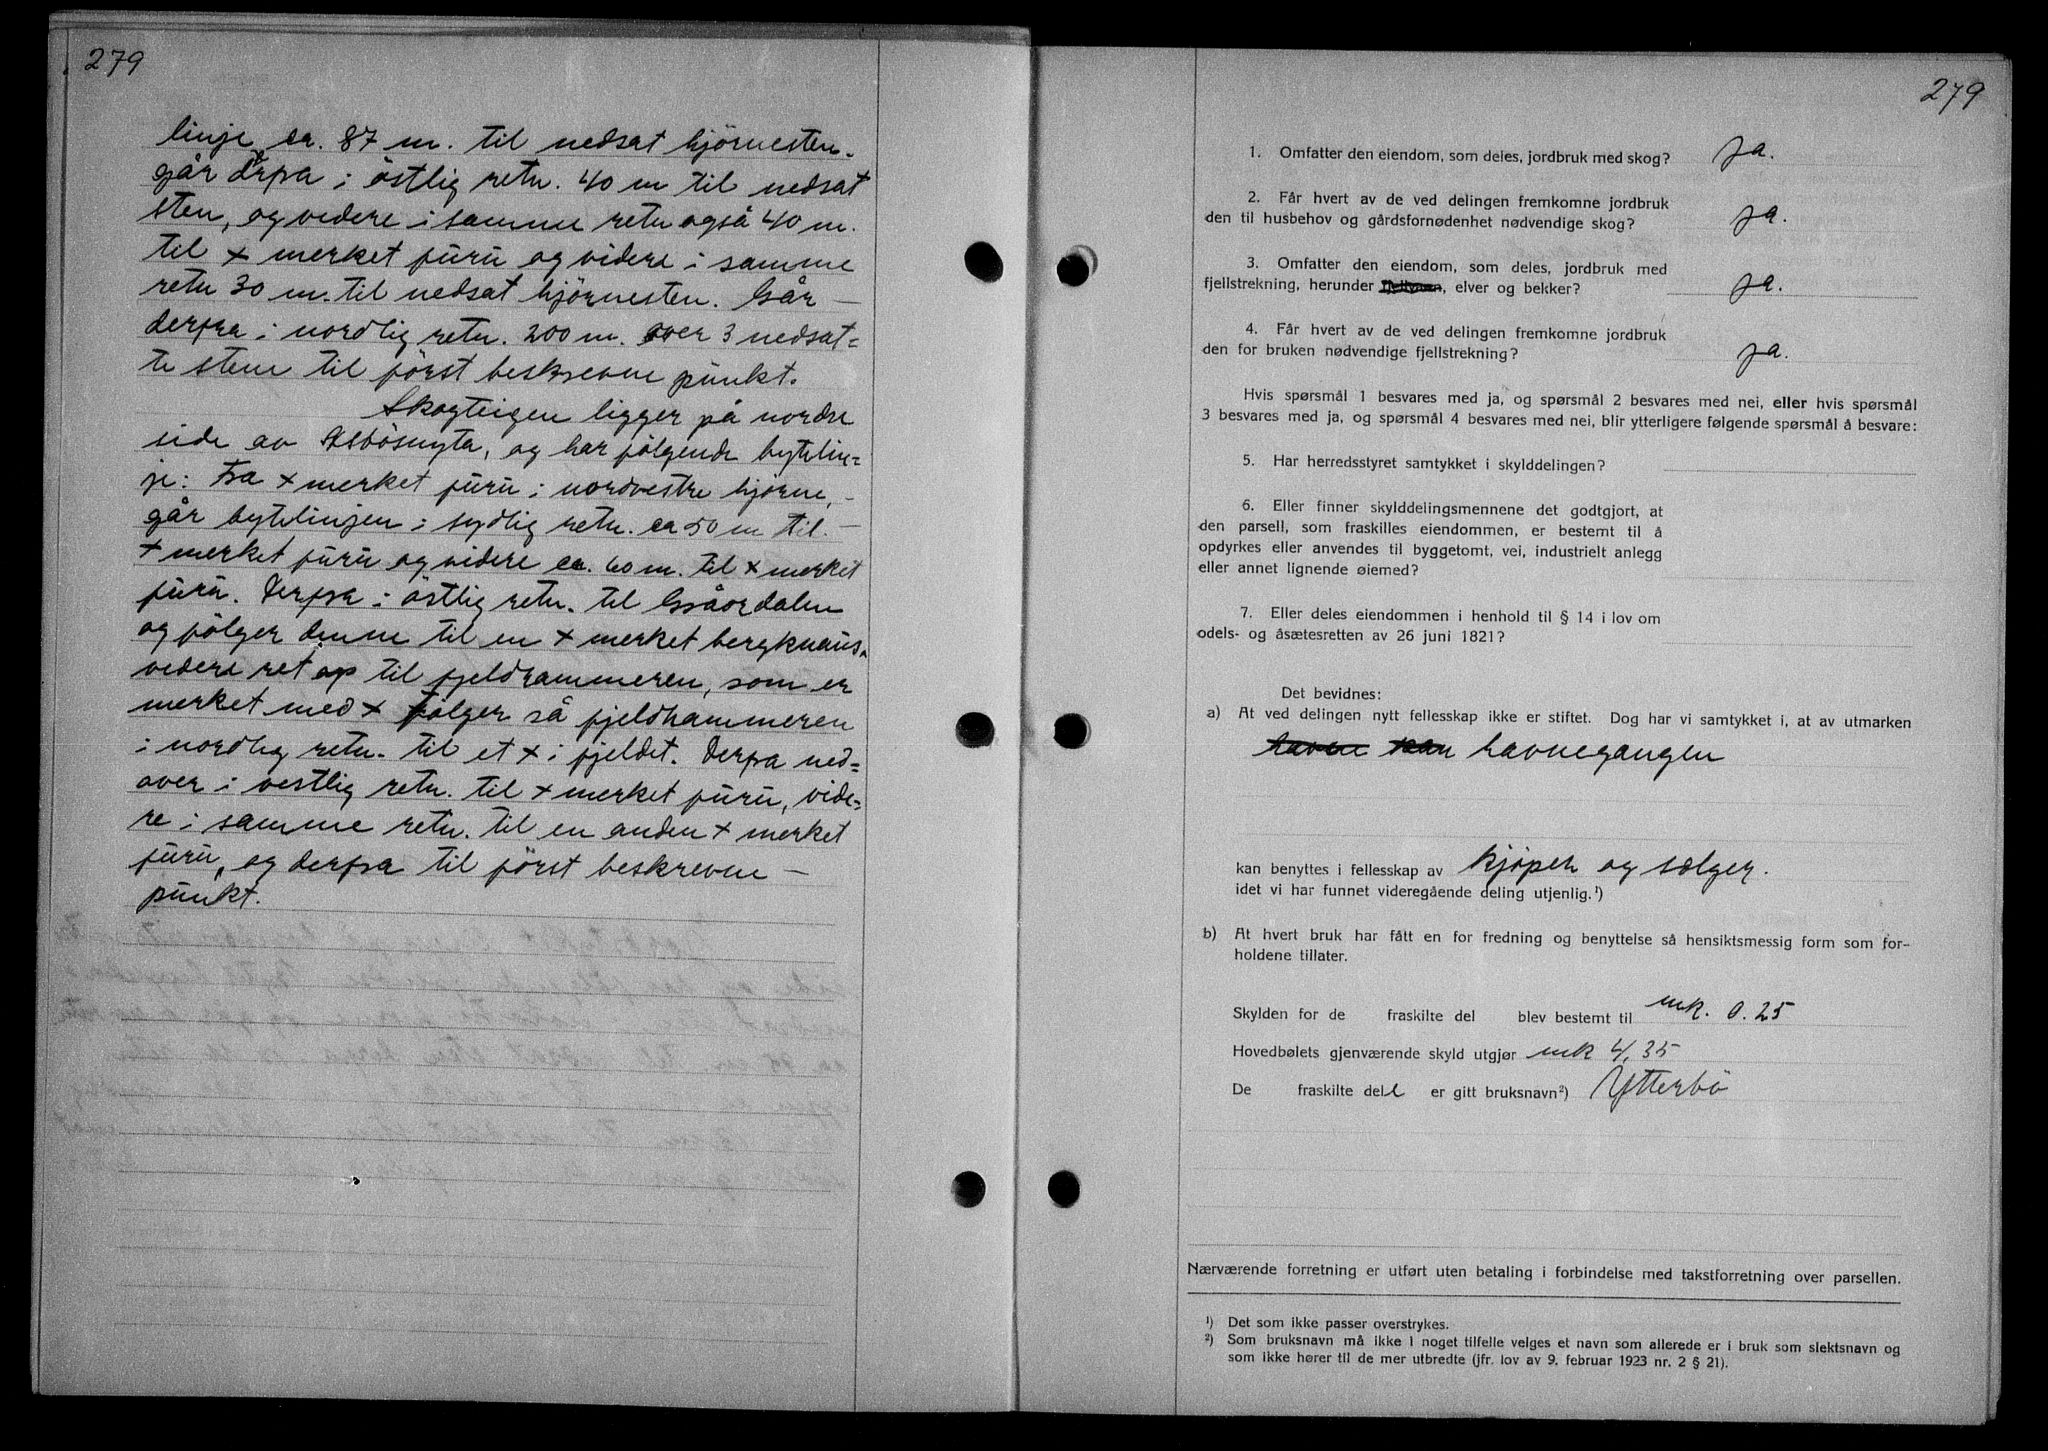 279
linje ca. 87 m. til nedsat hjörnesten.
går derfra i östlig retn. 40 m til nedsat
sten, og videre i samme retn også 40 m.
til + merket furu og videre i samme
retn 30 m. til nedsat hjörnesten. Går —
derfra i nordlig retn. 200 m. over 3 nedsat=
te stene til först beskrevne punkt.
Skogteigen ligger på nordre
side av , og har fölgende bytelin=
je: Fra + merket furu i nordvestre hjörne, -
går bytelinjen i sydlig retn. ca 50 m til -
+ merket furu og videre ca. 60 m. til + merket
furu. Derfra i östlig retn. til
og fölger denne til en + merket bergknaus.
videre ret op til fjeldhammeren, som er
merket med + fölger så fjeldhammeren
i nordlig retn. til et + i fjeldet. Derfra ned=
over i vestlig retn. til + merket furu, vide=
re i samme retn. til en anden + merket
furu, og derfra til först beskrevne —
punkt.
279
1. Omfatter den eiendom, som deles, jordbruk med skog? ja.
2. Får hvert av de ved delingen fremkomne jordbruk
den til husbehov og gårdsfornødenhet nødvendige skog? ja.
3. Omfatter den eiendom, som deles, jordbruk med
fjellstrekning, herunder fjellvann, elver og bekker? ja.
4. Får hvert av de ved delingen fremkomne jordbruk
den for bruken nødvendige fjellstrekning? ja.
Hvis spørsmål 1 besvares med ja, og spørsmål 2 besvares med nei, eller hvis spørsmål
3 besvares med ja, og spørsmål 4 besvares med nei, blir ytterligere følgende spørsmål å besvare:
5. Har herredsstyret samtykket i skylddelingen?
6. Eller finner skylddelingsmennene det godtgjort, at
den parsell, som fraskilles eiendommen, er bestemt til å
opdyrkes eller anvendes til byggetomt, vei, industrielt anlegg
eller annet lignende øiemed?
7. Eller deles eiendommen i henhold til § 14 i lov om
odels- og åsætesretten av 26 juni 1821?
Det bevidnes:
a) At ved delingen nytt fellesskap ikke er stiftet. Dog har vi samtykket i, at av utmarken
havne kan havnegangen
kan benyttes i fellesskap av kjøper og sælger.
idet vi har funnet videregående deling utjenlig.¹)
b) At hvert bruk har fått en for fredning og benyttelse så hensiktsmessig form som for-
holdene tillater.
Skylden for de fraskilte del blev bestemt til mk. 0.25
Hovedbølets gjenværende skyld utgjør mk 4,35
De fraskilte del er gitt bruksnavn²) Ytterbö
Nærværende forretning er utført uten betaling i forbindelse med takstforretning over parsellen.
¹) Det som ikke passer overstrykes.
²) Som bruksnavn må ikke i noget tilfelle velges et navn som allerede er i bruk som slektsnavn og
som ikke hører til de mer utbredte (jfr. lov av 9. februar 1923 nr. 2 § 21).